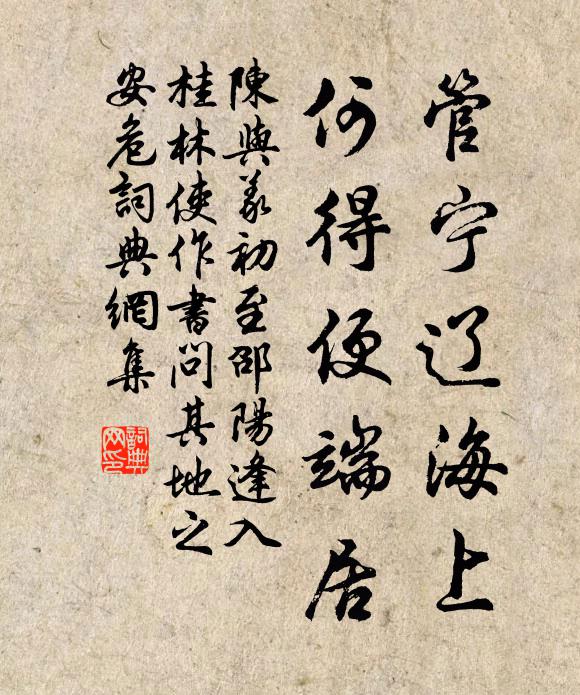 管宁辽海上
何得便端居
陳與義初至邵陽逢入
桂林使作書問其地之
安危詞典網集
詞典網印